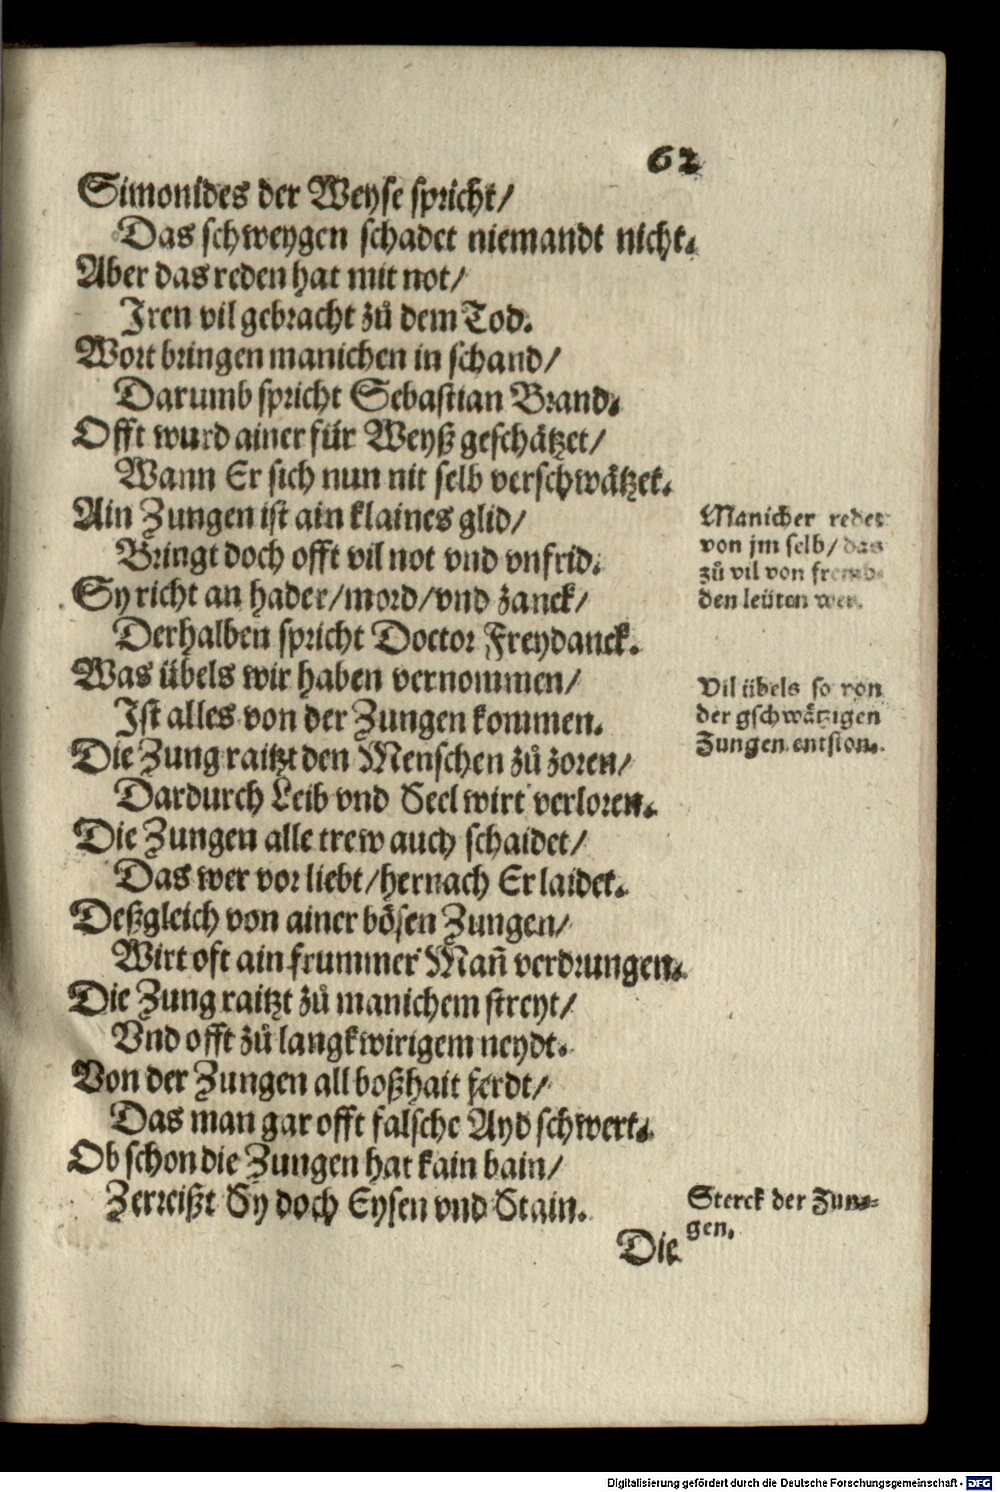 62
Simonides der Weyse spricht/
Das schweygen schadet niemandt nicht.
Aber das reden hat mit not/
Iren vil gebracht zů dem Tod.
Wort bringen manichen in schand/
Darumb spricht Sebastian Brand.
Offt wurd ainer für Weyß geschätzet/
Wann Er sich nun nit selb verschwätzet.
Ain Zungen ist ain klaines glid/
Bringt doch offt vil not vnd vnfrid.
Sy richt an hader/mord/vnd zanck/
Derhalben spricht Doctor Freydanck.
Was übels wir haben vernommen/
Ist alles von der Zungen kommen.
Die Zung raitzt den Menschen zů zoren/
Dardurch Leib vnd Seel wirt verloren.
Die Zungen alle trew auch schaidet/
Das wer vor liebt/hernach Er laidet.
Deßgleich von ainer bösen Zungen/
Wirt oft ain frummer Mañ verdrungen.
Die Zung raitzt zů manichem streyt/
Vnd offt zů langkwirigem neydt.
Von der Zungen all boßhait ferdt/
Das man gar offt falsche Ayd schwert.
Ob schon die Zungen hat kain bain/
Zerreißt Sy doch Eysen vnd Stain.
Die
Manicher redet
von jm selb/das
zů vil von fremb-
den leüten wer.
Vil übels so von
der gschwätzigen
Zungen entston.
Sterck der Zun-
gen.
Digitalisierung gefördert durch die Deutsche Forschungsgemeinschaft - DFG